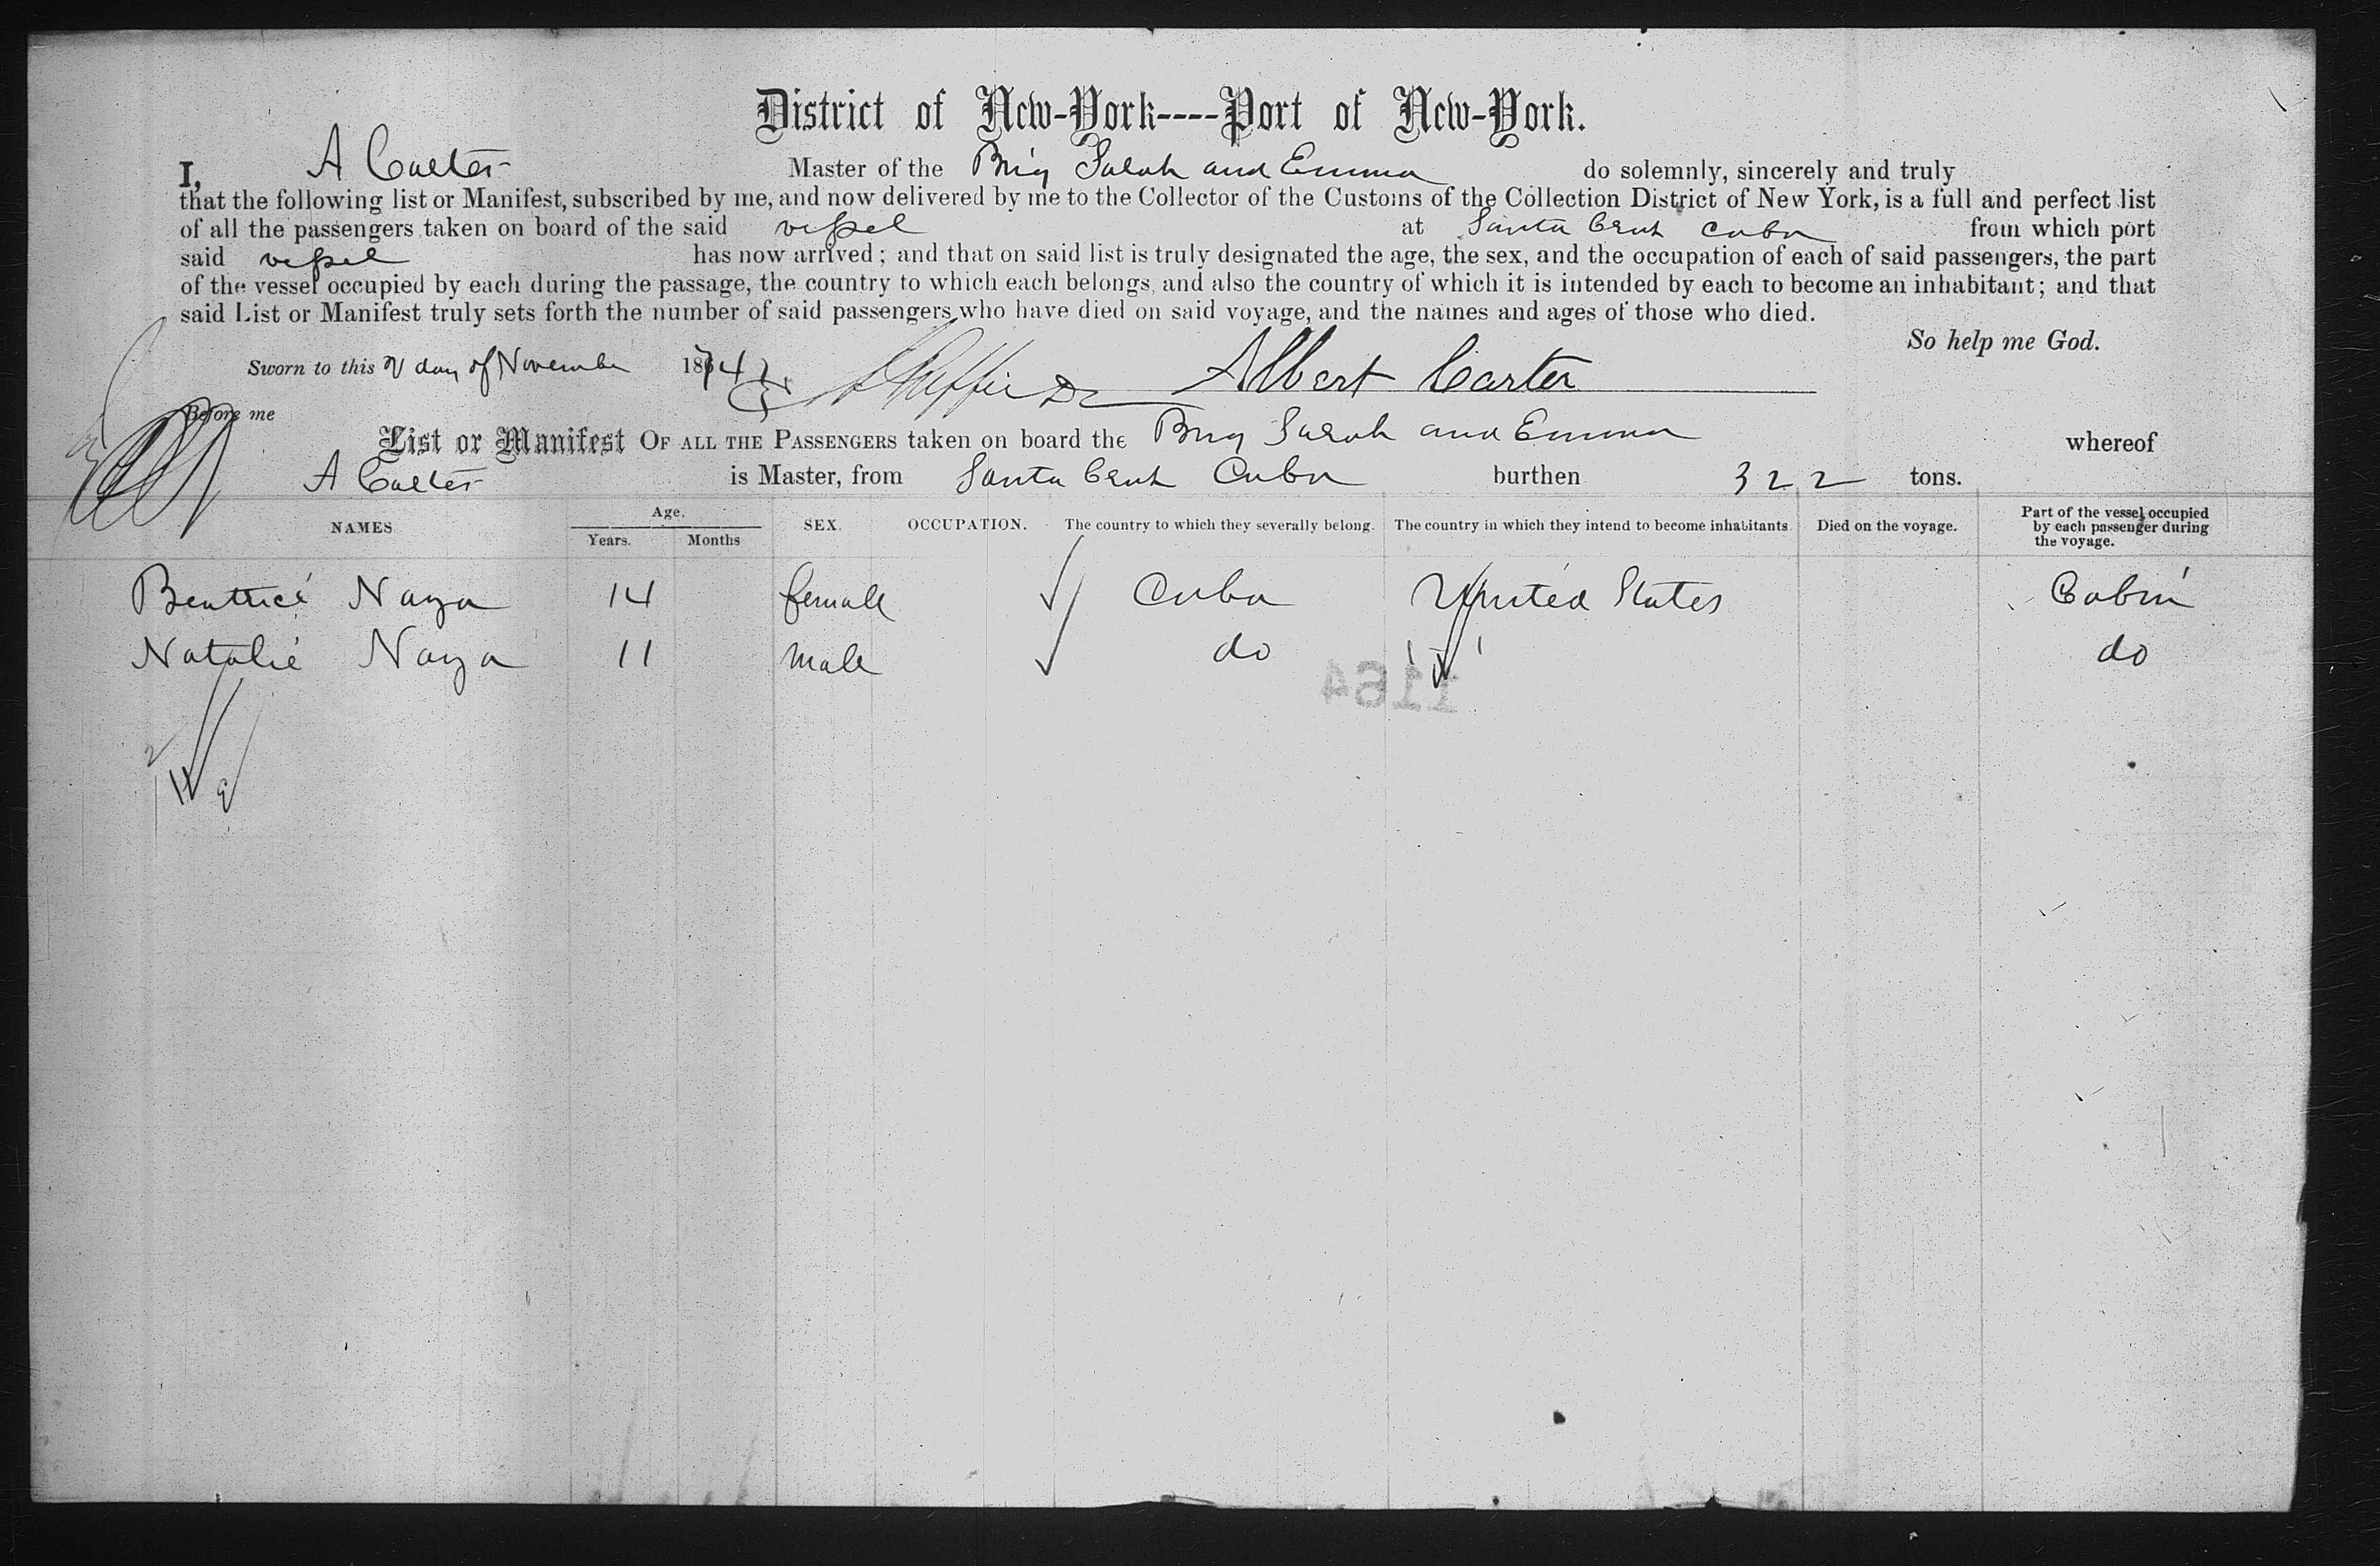 District of New-York----Port of New-York.
I, A Carter Master of the Brig Sarah and Emma do solemnly, sincerely and truly
that the following list or Manifest, subscribed by me, and now delivered by me to the Collector of the Customs of the Collection District of New York, is a full and perfect list
of all the passengers taken on board of the said vessel at Santa Cruz Cuba from which port
said vessel has now arrived; and that on said list is truly designated the age, the sex, and the occupation of each of said passengers, the part
of the vessel occupied by each during the passage, the country to which each belongs, and also the country of which it is intended by each to become an inhabitant; and that
said List or Manifest truly sets forth the number of said passengers who have died on said voyage, and the names and ages of those who died.
So help me God.
Sworn to this 2 day of November 1874 Albert Carter
Before me
List or Manifest OF ALL THE PASSENGERS taken on board the Brig Sarah and Emma whereof
A Carter is Master, from Santa Cruz Cuba burthen 322 tons.
NAMES Age. Years. Months SEX. OCCUPATION. The country to which they severally belong. The country in which they intend to become inhabitants. Died on the voyage. Part of the vessel occupied by each passenger during the voyage.
Beatrice Naza 14 female Cuba United States Cabin
Natalie Naza 11 male do " " do
1164